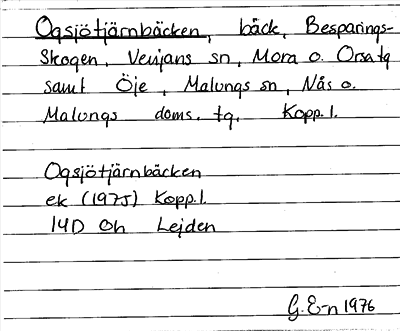 Oqsjötjärnbäcken, bäck, Besparings-
Skogen, Venjans sn, Mora o. Orsa tg
samt Öje, Malungs sn, Nås o.
Malungs doms. tg. Kopp. l.
Oqsjötjärnbäcken
ek (1975) Kopp. l.
14D Oh Lejden
G. E-n 1976